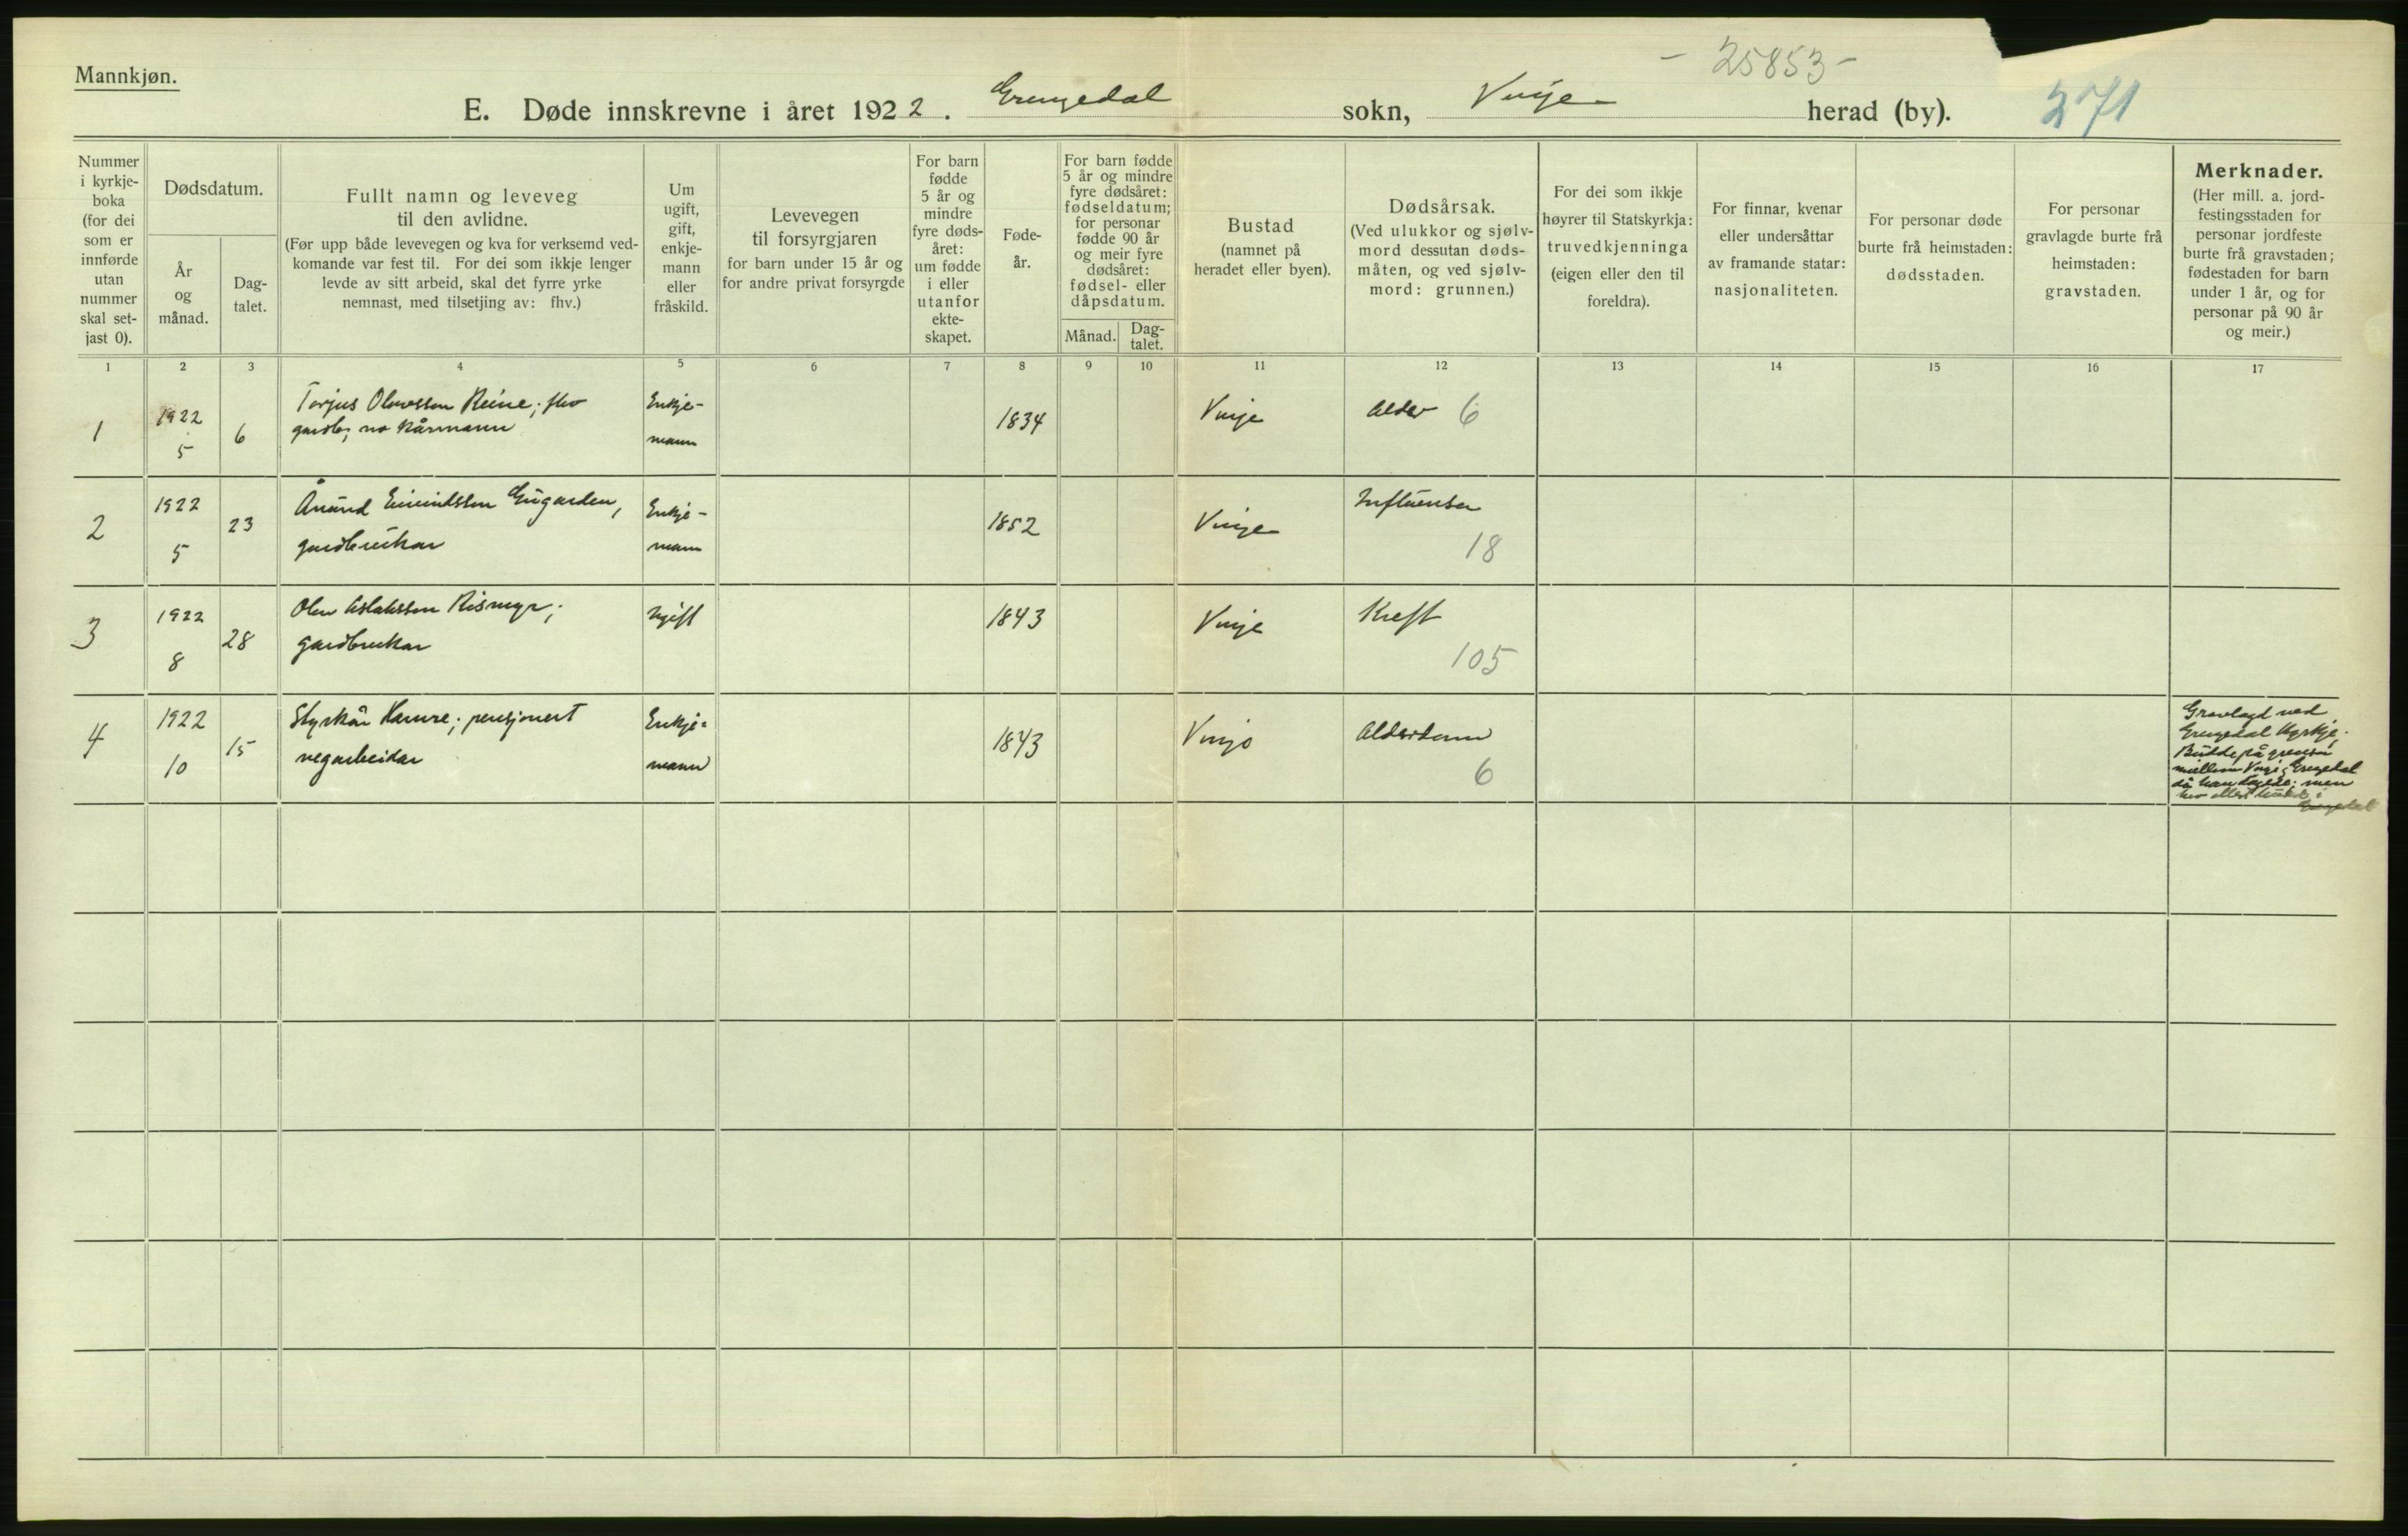 - 25853 -
Mannkjøn.
E. Døde innskrevne i året 1922. Grungedal sokn, Vinje herad (by). 271
Nummer
i kyrkje-
boka
(for dei
som er
innførde
utan
nummer
skal set-
jast 0).
Dødsdatum.
År
og
månad.
Dag-
talet.
Fullt namn og leveveg
til den avlidne.
(Før upp både levevegen og kva for verksemd ved-
komande var fest til. For dei som ikkje lenger
levde av sitt arbeid, skal det fyrre yrke
nemnast, med tilsetjing av: fhv.)
Um
ugift,
gift,
enkje-
mann
eller
fråskild.
Levevegen
til forsyrgjaren
for barn under 15 år og
for andre privat forsyrgde
For barn
fødde
5 år og
mindre
fyre døds-
året:
um fødde
i eller
utanfor
ekte-
skapet.
Føde-
år.
For barn fødde
5 år og mindre
fyre dødsåret:
fødseldatum;
for personar
fødde 90 år
og meir fyre
dødsåret:
fødsel- eller
dåpsdatum.
Månad.
Dag-
talet.
Bustad
(namnet på
heradet eller byen).
Dødsårsak.
(Ved ulukkor og sjølv-
mord dessutan døds-
måten, og ved sjølv-
mord: grunnen.)
For dei som ikkje
høyrer til Statskyrkja:
truvedkjenninga
(eigen eller den til
foreldra).
For finnar, kvenar
eller undersåttar
av framande statar:
nasjonaliteten.
For personar døde
burte frå heimstaden:
dødsstaden.
For personar
gravlagde burte frå
heimstaden:
gravstaden.
Merknader.
(Her mill. a. jord-
festingsstaden for
personar jordfeste
burte frå gravstaden;
fødestaden for barn
under 1 år, og for
personar på 90 år
og meir.)
1 2 3 4 5 6 7 8 9 10 11 12 13 14 15 16 17
1 1922 5 6 Torjus Olavsson Reine; fhv
gardb; no kårmann
Enkje-
mann
1834 Vinje Alder 6
2 1922 5 23 Ånund Eivindsson Haugarden,
gardbrukar
Enkje-
mann
1852 Vinje Influensa
18
3 1922 8 28 Olav Aslaksson Rismyr;
gardbrukar
Ugift 1843 Vinje Kreft
105
4 1922 10 15 Styrkår Hamre; pensjonert
vegarbeidar
Enkje=
mann
1843 Vinje Alderdom
6
Gravlagd ved
Grungedal Kyrkje.
Budde på grensa
millom Vinje, Grungedal
då han døydde; men
hev elles budd i
Grungedal